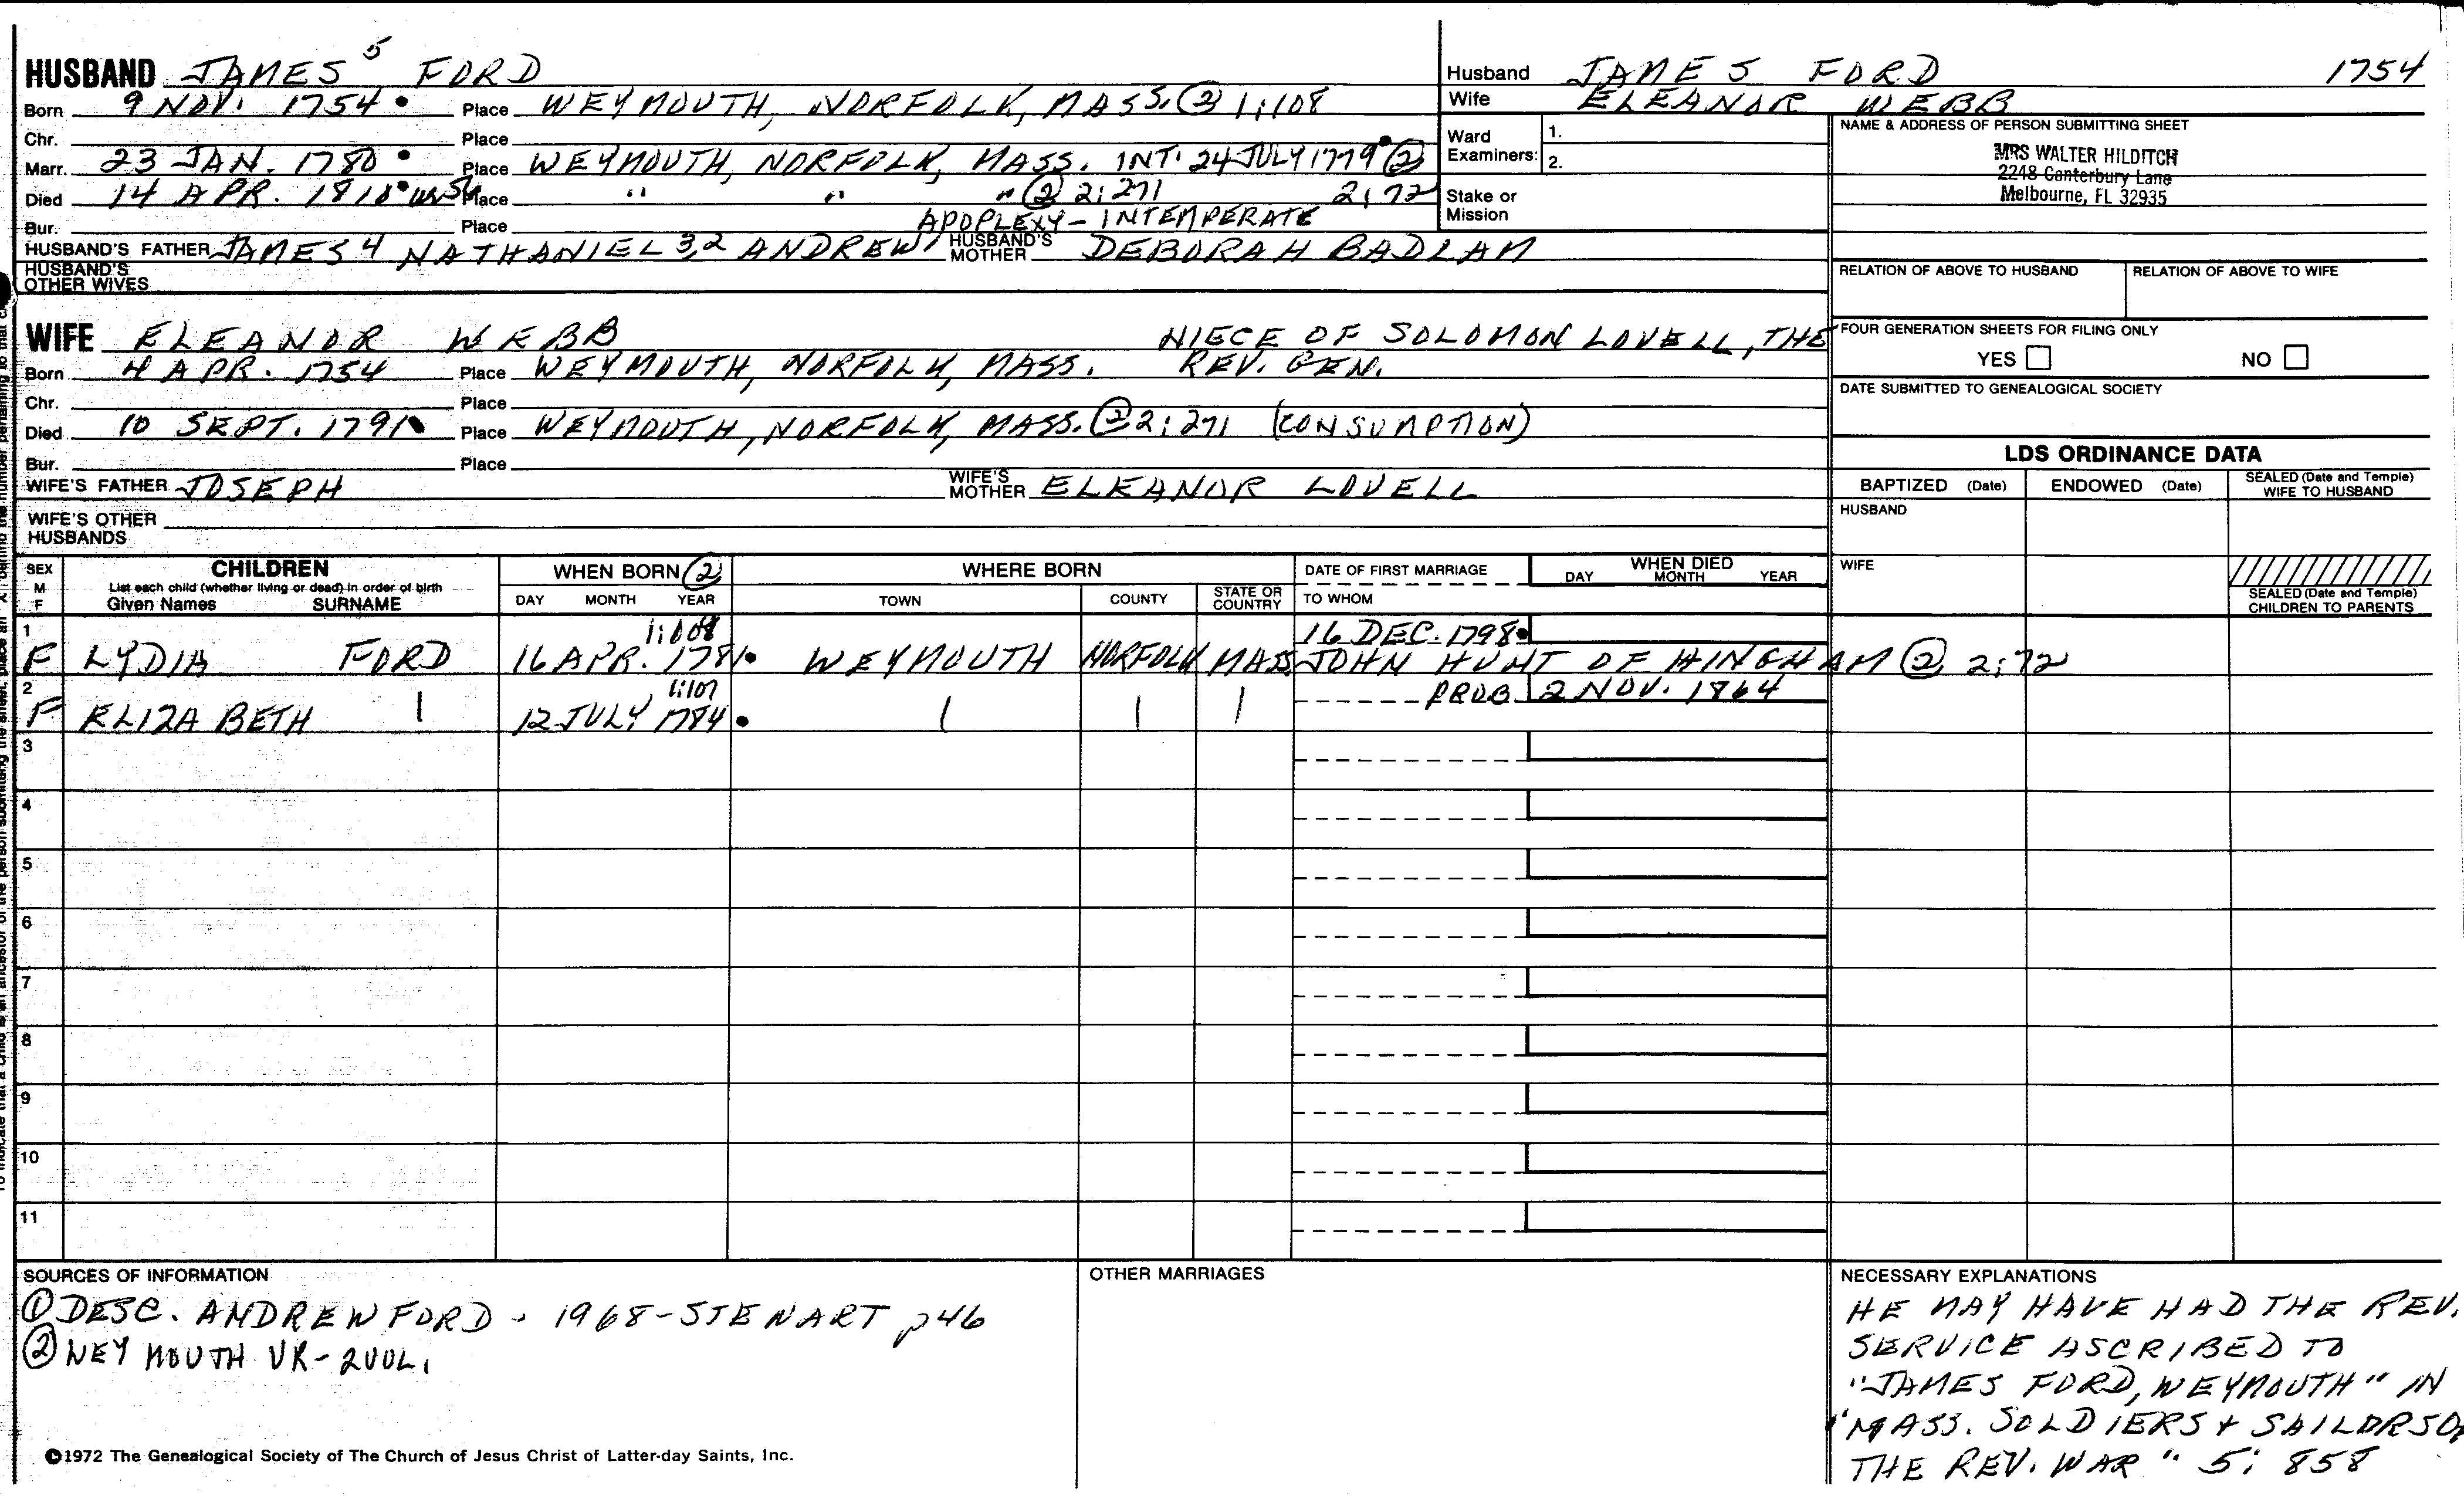 HUSBAND JAMES 5 FORD
Born 9 NOV. 1754 • Place WEYMOUTH, NORFOLK, MASS. ② 1:108
Chr. Place
Marr. 23 JAN. 1780 • Place WEYMOUTH, NORFOLK, MASS. INT. 24 JULY 1779 • ②
Died 14 APR. 1818 • Place " " " ② 2:271 2:72
Bur. Place APOPLEXY - INTEMPERATE
HUSBAND'S FATHER JAMES 4 NATHANIEL 3,2 ANDREW 1 HUSBAND'S MOTHER DEBORAH BADLAM
HUSBAND'S OTHER WIVES
Husband JAMES FORD 1754
Wife ELEANOR WEBB
Ward Examiners: 1.
2.
Stake or Mission
NAME & ADDRESS OF PERSON SUBMITTING SHEET
MRS WALTER HILDITCH
2248 Canterbury Lane
Melbourne, FL 32935
RELATION OF ABOVE TO HUSBAND RELATION OF ABOVE TO WIFE
FOUR GENERATION SHEETS FOR FILING ONLY
YES NO
DATE SUBMITTED TO GENEALOGICAL SOCIETY
WIFE ELEANOR WEBB NIECE OF SOLOMON LOVELL, THE
Born 4 APR. 1754 Place WEYMOUTH, NORFOLK, MASS. REV. GEN.
Chr. Place
Died 10 SEPT. 1791 • Place WEYMOUTH, NORFOLK, MASS. ② 2:271 (CONSUMPTION)
Bur. Place
WIFE'S FATHER JOSEPH WIFE'S MOTHER ELEANOR LOVELL
WIFE'S OTHER HUSBANDS
LDS ORDINANCE DATA
BAPTIZED (Date) ENDOWED (Date) SEALED (Date and Temple) WIFE TO HUSBAND
HUSBAND
WIFE
SEALED (Date and Temple) CHILDREN TO PARENTS
SEX M F
CHILDREN
List each child (whether living or dead) in order of birth
Given Names SURNAME
WHEN BORN ②
DAY MONTH YEAR
WHERE BORN
TOWN COUNTY STATE OR COUNTRY
DATE OF FIRST MARRIAGE
TO WHOM
WHEN DIED
DAY MONTH YEAR
1 1:108 16 DEC. 1798 •
F LYDIA FORD 16 APR. 1781 • WEYMOUTH NORFOLK MASS. JOHN HUNT OF HINGHAM ② 2:72
2 1:107 PROB. 2 NOV. 1864
F ELIZABETH | 12 JULY 1784 • | | |
3
4
5
6
7
8
9
10
11
SOURCES OF INFORMATION
① DESC. ANDREW FORD - 1968 - STEWART p 46
② WEYMOUTH VR - 2 VOL.
OTHER MARRIAGES
NECESSARY EXPLANATIONS
HE MAY HAVE HAD THE REV.
SERVICE ASCRIBED TO
"JAMES FORD, WEYMOUTH" IN
"MASS. SOLDIERS + SAILORS OF
THE REV. WAR" 5: 858
©1972 The Genealogical Society of The Church of Jesus Christ of Latter-day Saints, Inc.